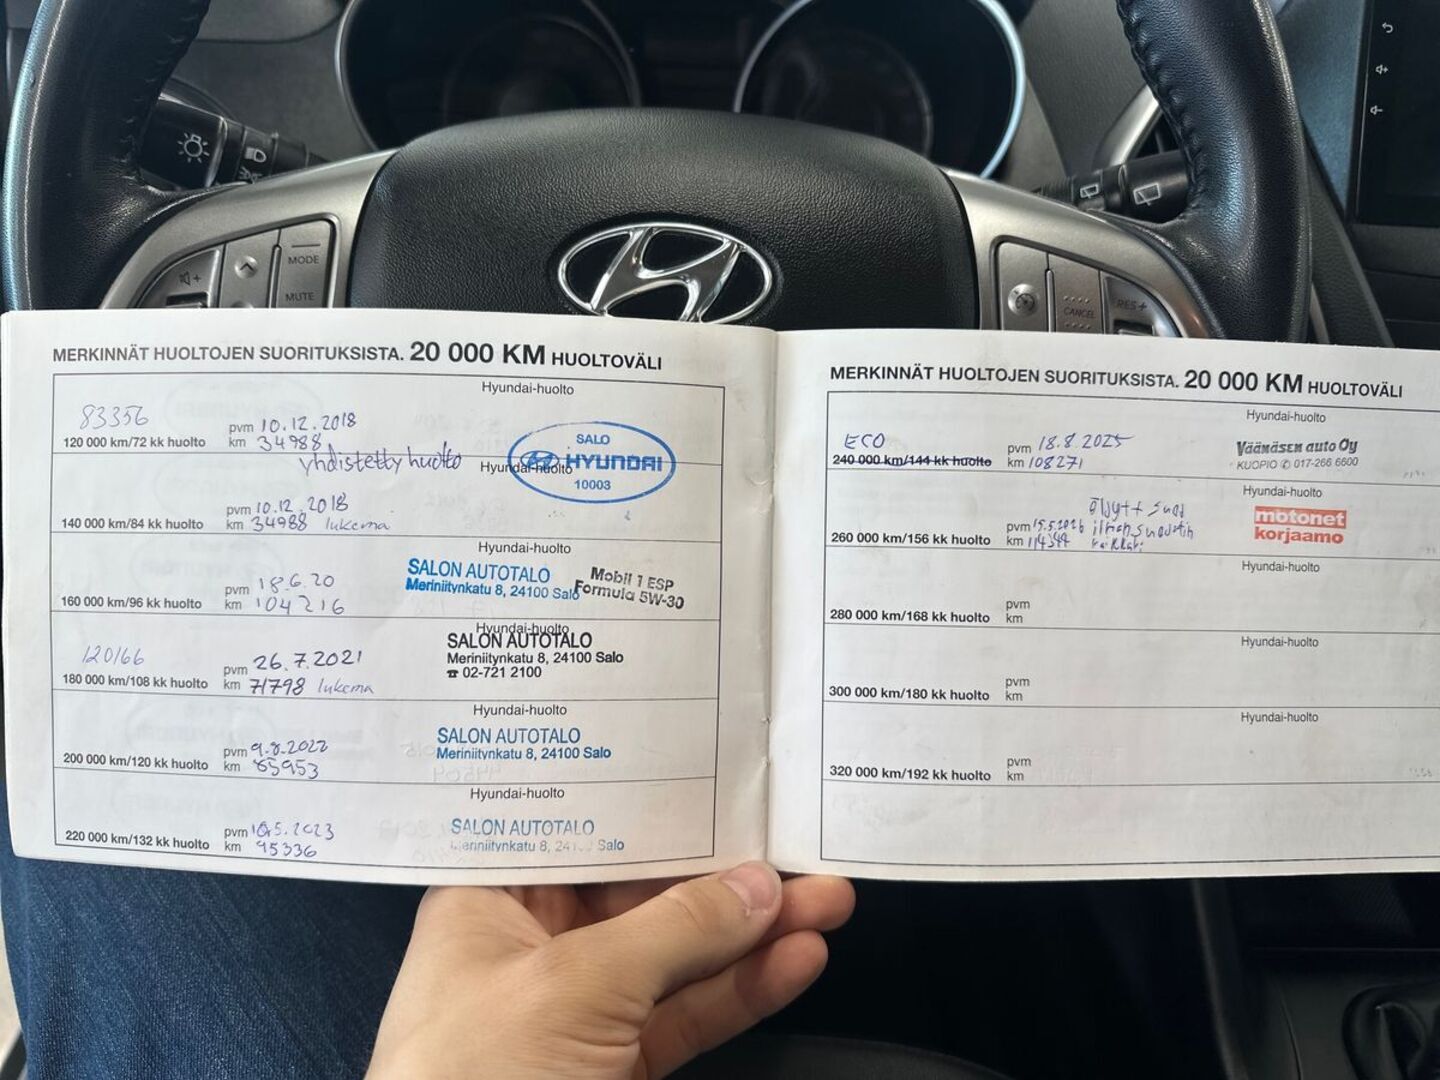 MODE
MUTE
CANCEL
RES +
MERKINNÄT HUOLTOJEN SUORITUKSISTA. 20 000 KM HUOLTOVÄLI
Hyundai-huolto
83356
pvm 10.12.2018
120 000 km/72 kk huolto km 34988
yhdistetty huolto
SALO
HYUNDAI
10003
Hyundai-huolto
pvm 10.12.2018
140 000 km/84 kk huolto km 34988 lukema
Hyundai-huolto
SALON AUTOTALO
Meriniitynkatu 8, 24100 Salo
Mobil 1 ESP
Formula 5W-30
pvm 18.6.20
160 000 km/96 kk huolto km 104216
Hyundai-huolto
SALON AUTOTALO
Meriniitynkatu 8, 24100 Salo
☎ 02-721 2100
120166
pvm 26.7.2021
180 000 km/108 kk huolto km 71798 lukema
Hyundai-huolto
SALON AUTOTALO
Meriniitynkatu 8, 24100 Salo
pvm 9.8.2022
200 000 km/120 kk huolto km 85953
Hyundai-huolto
SALON AUTOTALO
Meriniitynkatu 8, Salo
pvm
220 000 km/132 kk huolto km 95336
MERKINNÄT HUOLTOJEN SUORITUKSISTA. 20 000 KM HUOLTOVÄLI
Hyundai-huolto
ECO
pvm 18.8.2025
240 000 km/144 kk huolto km 108271
Väänäsen auto Oy
KUOPIO ✆ 017-266 6600
Hyundai-huolto
motonet
korjaamo
pvm 15.5.2026
260 000 km/156 kk huolto km 114344
Hyundai-huolto
pvm
280 000 km/168 kk huolto km
Hyundai-huolto
pvm
300 000 km/180 kk huolto km
Hyundai-huolto
pvm
320 000 km/192 kk huolto km